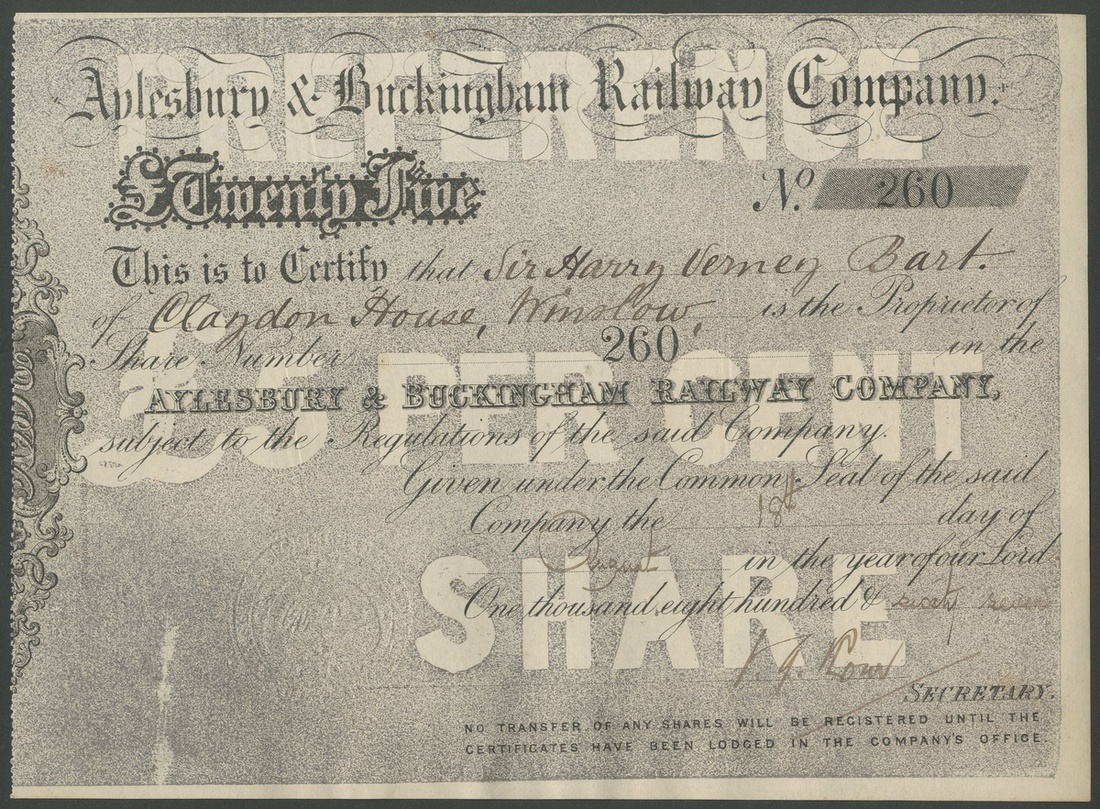 PREFERENCE
Aylesbury & Buckingham Railway Company.
£Twenty Five
No. 260
This is to Certify that Sir Harry Verney Bart.
of Claydon House, Winslow, is the Proprietor of
Share Number 260 in the
£5 PER CENT
AYLESBURY & BUCKINGHAM RAILWAY COMPANY,
subject to the Regulations of the said Company.
Given under the Common Seal of the said
Company the 18th day of
August in the year of our Lord
SHARE
One thousand eight hundred & sixty seven
SECRETARY.
NO TRANSFER OF ANY SHARES WILL BE REGISTERED UNTIL THE
CERTIFICATES HAVE BEEN LODGED IN THE COMPANY'S OFFICE.